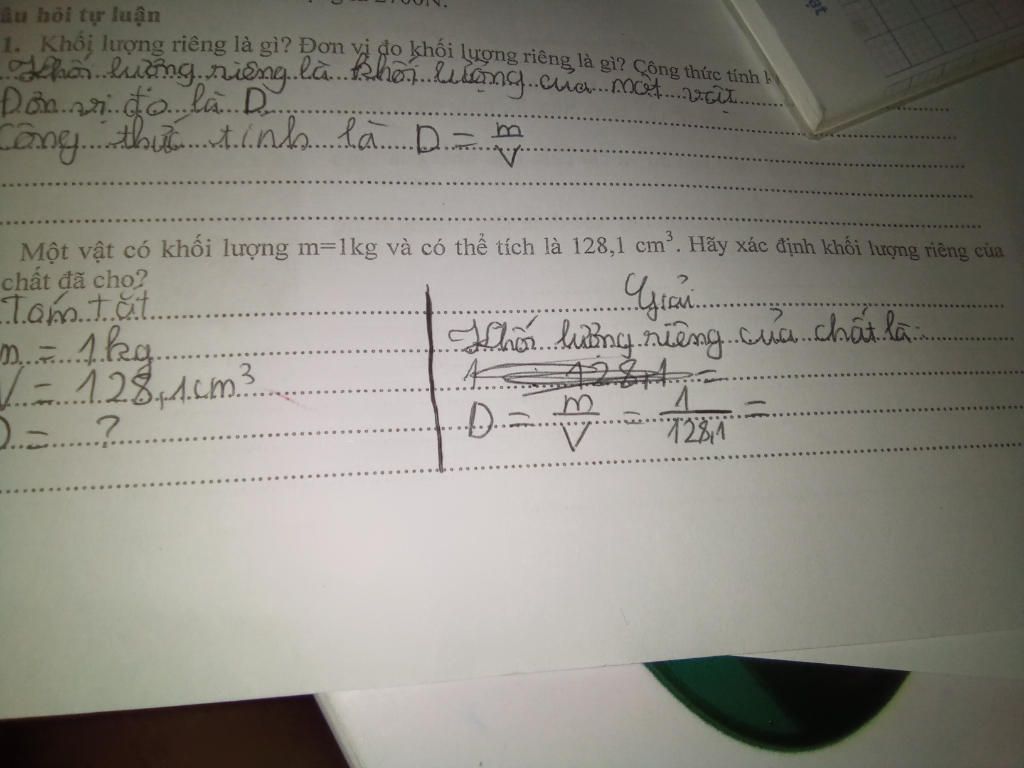 âu hỏi tự luận
1. Khối lượng riêng là gì? Đơn vị đo khối lượng riêng là gì? Công thức tính
Khối lượng riêng là khối lượng của một vật
Đơn vị đo là D
Công thức tính là D = m/V
Một vật có khối lượng m=1kg và có thể tích là 128,1 cm³. Hãy xác định khối lượng riêng của
chất đã cho?
Tóm tắt
m = 1kg
V = 128,1cm³
D = ?
Giải
Khối lượng riêng của chất là:
D = m/V = 1/128,1 =